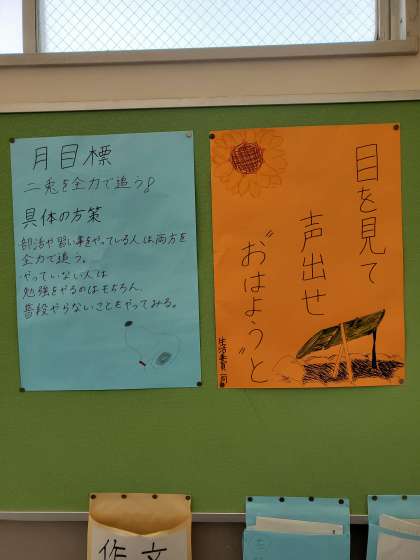 月目標
二兎を全力で追う!
具体の方策
・部活や習い事をやっている人は両方を
全力で追う。
・やっていない人は
勉強をやるのはもちろん、
普段やらないこともやってみる。
目を見て
声出せ
"おはよう"と
生活委員一同
作文